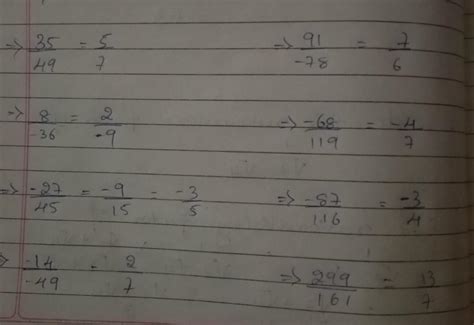 ⇒ 35/49 = 5/7 ⇒ 91/-78 = 7/6
⇒ 8/-36 = 2/-9 ⇒ -68/119 = -4/7
⇒ -27/45 = -9/15 = -3/5 ⇒ -87/116 = -3/4
⇒ -14/-49 = 2/7 ⇒ 299/161 = 13/7